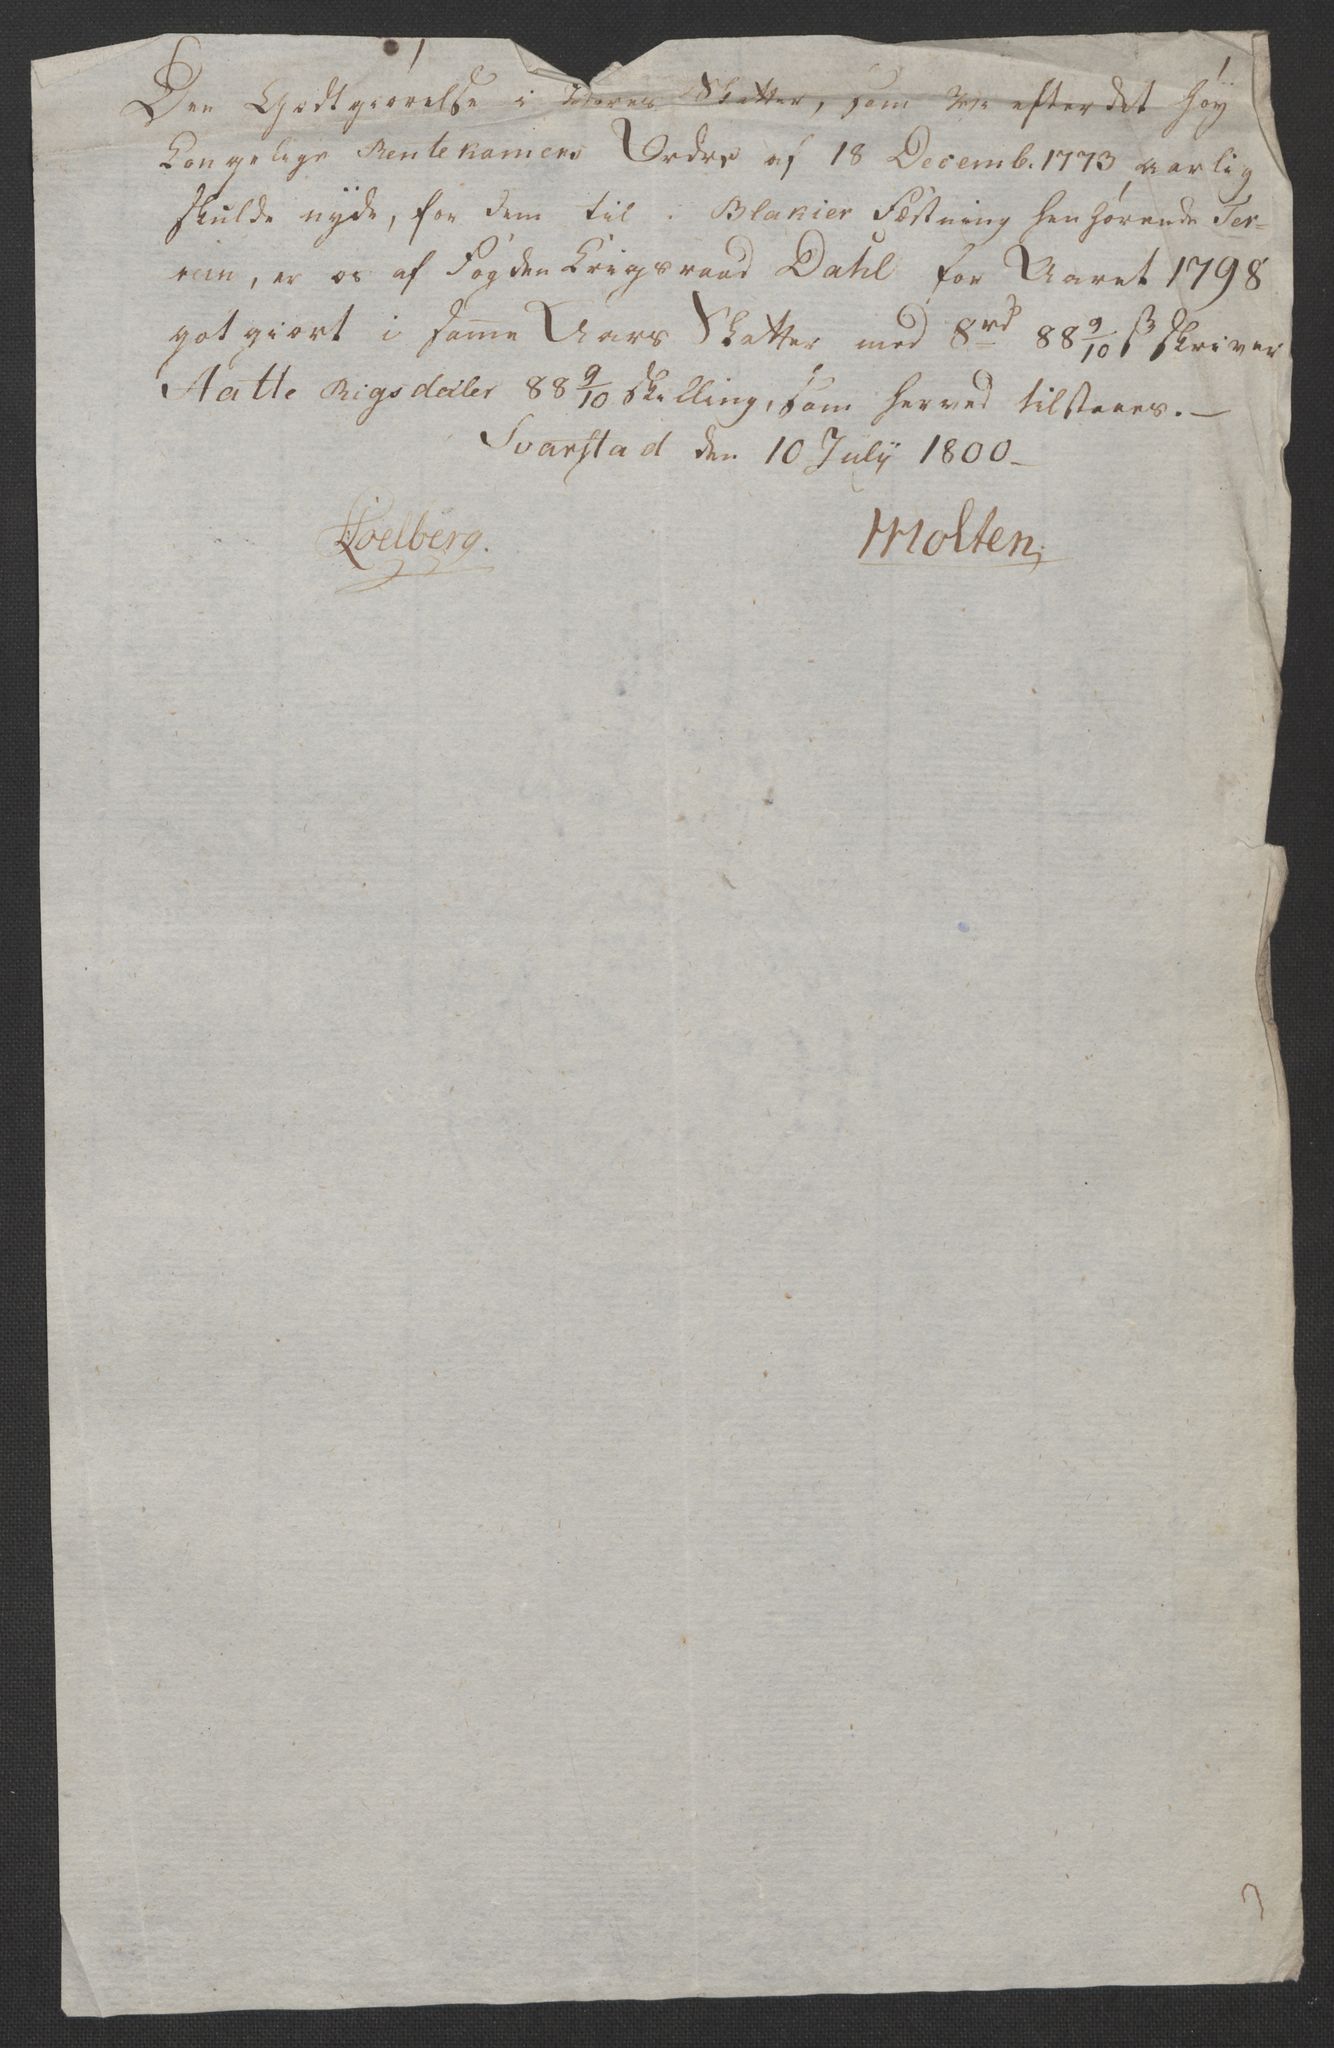 Den Godtgiørelse i Wores Skatter, som Wi efter det høy
Kongelige Rentekamers Ordre af 18 Decemb. 1773 aarlig
skulde nyde, for dem til Blakier Fæstning henhørende Ter-
rein, er os af Fogden Krigsraad Dahl for Aaret 1798
gotgiort i samme Aars Skatter med 8 rd 88 9/10 ß skriver
Aatte Rigsdaler 88 9/10 Skilling, som herved tilstaaes. —
Svarstad den 10 Julÿ 1800 –
Koelberg. Molten.